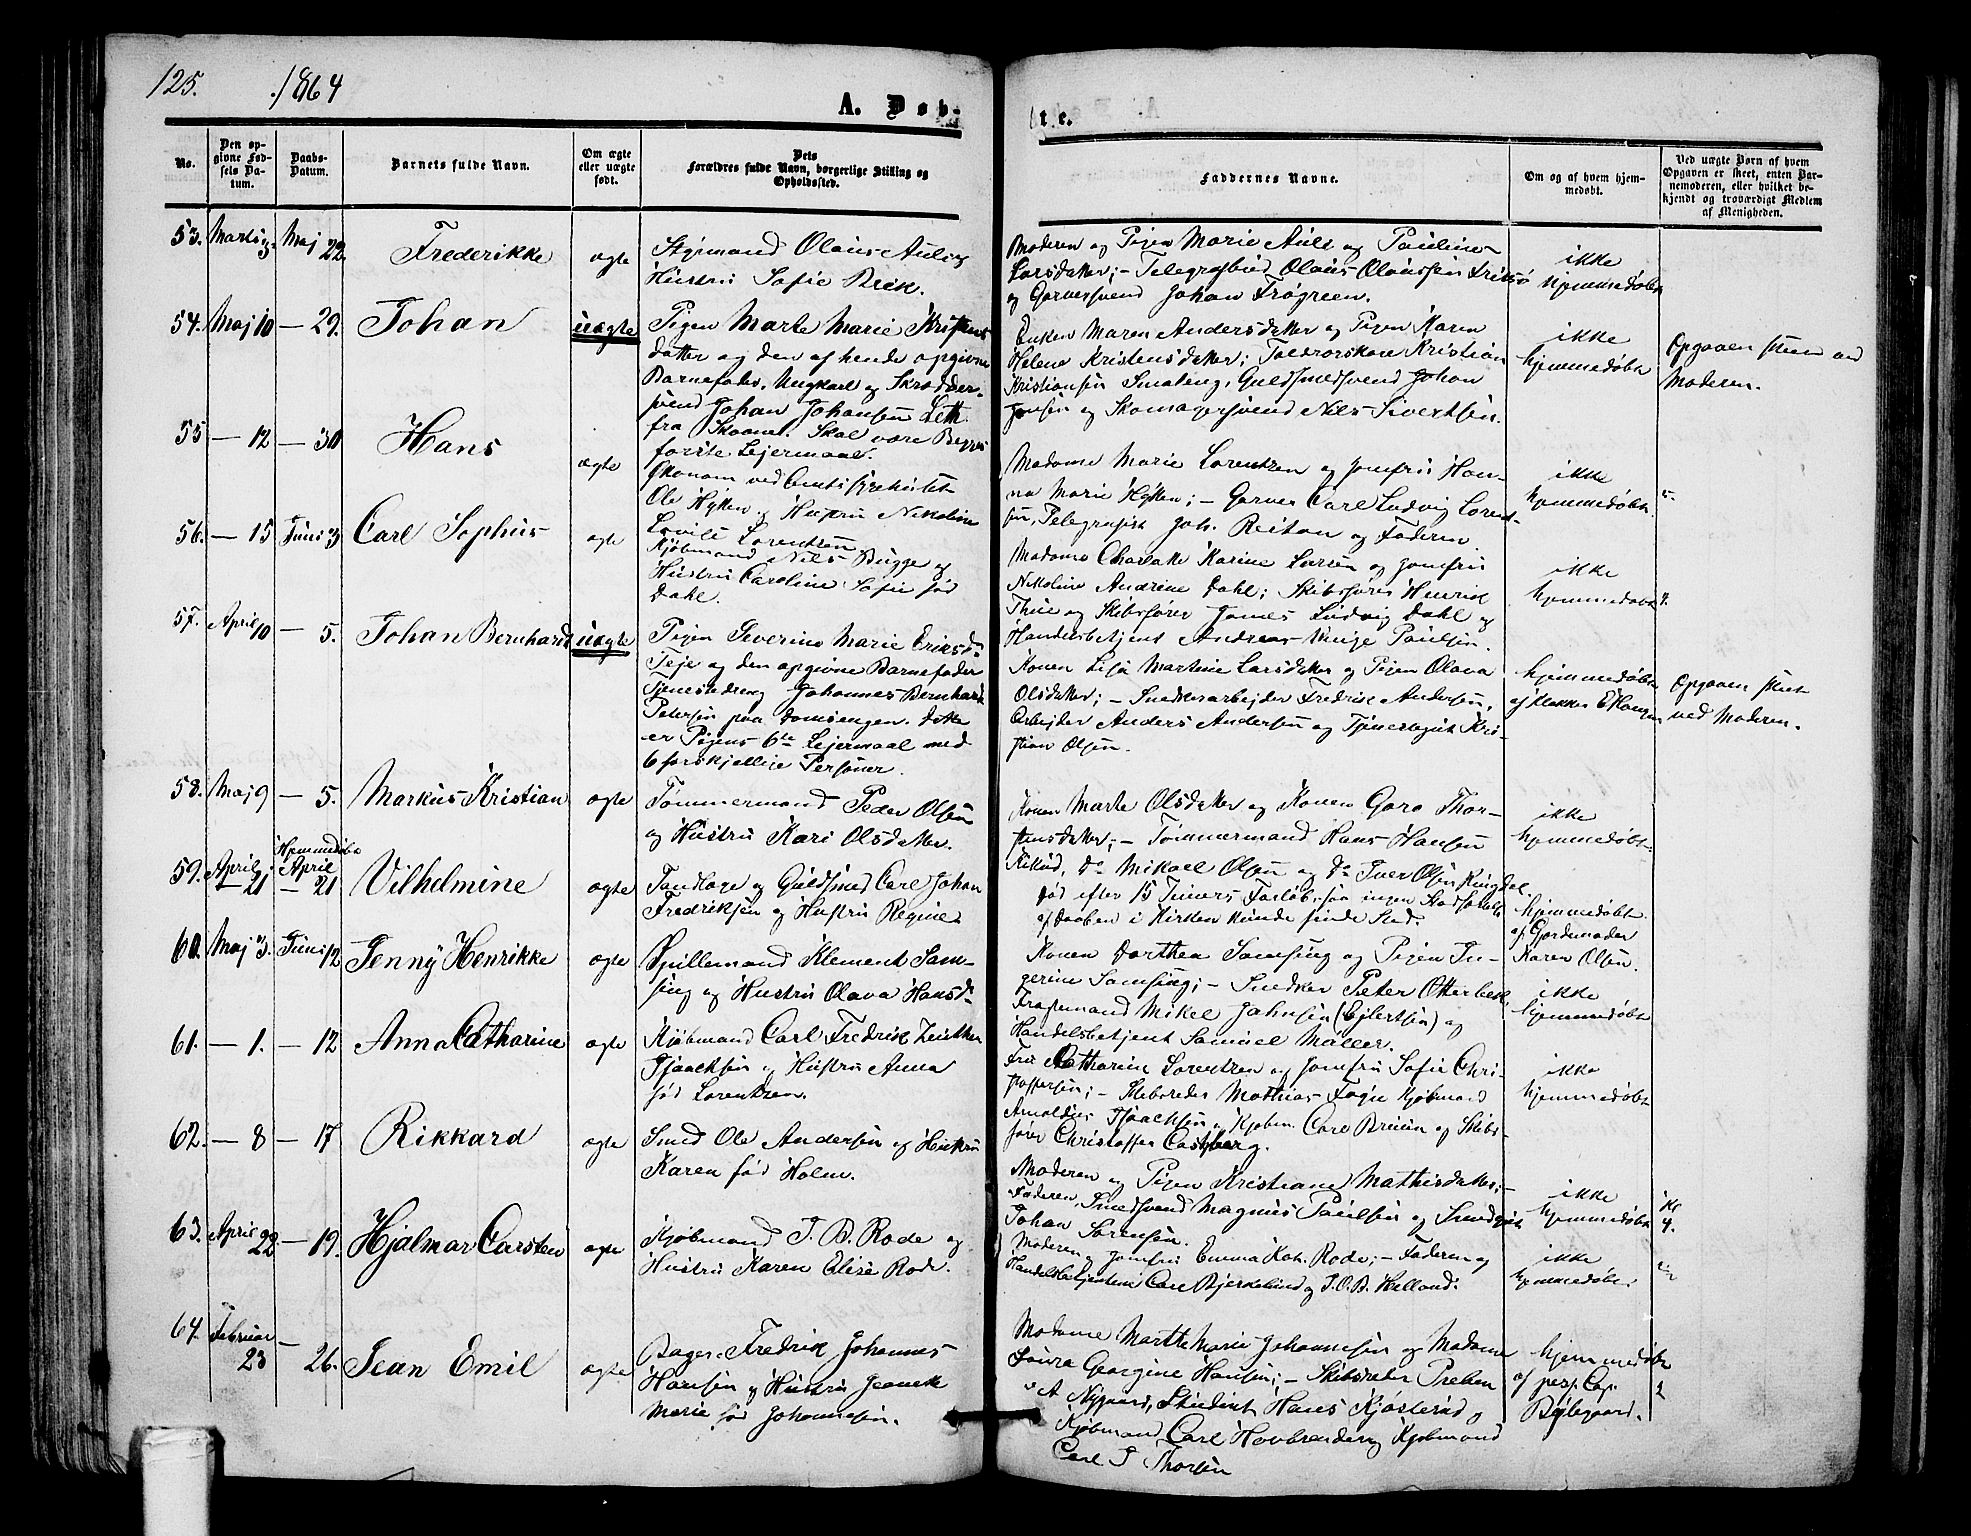 125. 1864
A. Døb-
te.
No.
Den op-
givne Fød-
sels Da-
tum.
Daabs-
Datum.
Barnets fulde Navn.
Om ægte
eller uægte
født.
Dets
Forældres fulde Navn, borgerlige Stilling og
Opholdssted.
Faddernes Navne.
Om og af hvem hjem-
medøbt.
Ved uægte Børn af hvem
Opgaven er skeet, enten Bar-
nemoderen, eller hvilket be-
kjendt og troværdigt Medlem
af Menigheden.
53. Marts 3 Maj 22. Frederikke ægte
Styrmand Olaus Aulie og
Hustru Sofie Brek.
Moderen og Pigen Marie Aulie og Pauline
Larsdatter; – Telegrafbud Olaus Olaussen
og Garversvend Johan Frøgreen.
ikke
hjemmedøbt
54. Maj 10 – 29. Johan uægte
Pigen Marte Marie Kristens
datter og den af hende opgivne
Barnefader, Ungkarl og Skrædder-
svend Johan Johansen Leth
fra Skaane. Skal være Begges
første Lejermaal.
Enken Maren Andersdatter og Pigen Karen
Helene Kristensdatter; Kristian
Kristiansen Smaleng, Guldsmedsvend Johan
Jonsen og Skomagersvend Nils Sivertsen.
ikke
hjemmedøbt
Opgaven skeet ved
Moderen.
55 – 12 – 30 Hans ægte
Økonom ved Amtssygehuset
Ole Hytten og Hustru Nikoline
Lovise Lorentzen
Madame Marie Lorentzen og Jomfru Han-
na Marie Hytten; – Garver Carl Ludvig Lorent-
sen, Telegrafist Joh. Reiton og Faderen
ikke
hjemmedøbt.
56. – 15 Juni 3 Carl Sophus ægte
Kjøbmand Nils Bugge og
Hustru Caroline Sofie fød
Dahl.
Madame Charlotte Karine Larsen og Jomfru
Nikoline Andrine Dahl; Skibsfører Henrik
Thue og Skibsfører James Ludvig Dahl og
Handelsbetjent Andreas Paulsen.
ikke
hjemmedøbt
57. April 10 – 5. Johan Bernhard uægte
Pigen Severine Marie Eriksd.
Teje og den opgivne Barnefader
Tjenestedreng Johannes Bernhard
Petersen paa Domsengen. Dette
er Pigens 6te Lejermaal med
6 forskjellige Personer.
Konen Lisa Martine Larsdatter og Pigen Olava
Olsdatter; – Snedkerarbejder Fredrik Andersen,
Arbejder Anders Andersen og Tjenestegut Kris-
tian Olsen.
hjemmedøbt
af Klokker
Opgaven skeet
ved Moderen.
58. Maj 9 – 5. Markus Kristian ægte
Tømmermand Peder Olsen
og Hustru Kari Olsdatter.
Konen Marte Olsdatter og Konen Guro Thor-
stensdatter; – Tømmermand Hans Hansen
Do Mikael Olsen og Do Iver Olsen Ringdal
ikke
hjemmedøbt
59. April 21 Hjemmedøbt April – 21 Vilhelmine ægte
Tandlæge og Guldsmed Carl Johan
Fredriksen og Hustru Regine
død efter 15 Timers Forløb, saa ingen Stadfæstelse
af Daaben i Kirken kunde finde Sted.
hjemmedøbt
af Gjordemoder
Karen Olsen.
60. Maj 3. Juni 12 Jenny Henrikke ægte
Spillemand Klement Sam-
sing og Hustru Olava Hansd.
Konen Dorthea Samsing og Pigen In-
gerine Samsing; – Snedker Peter Otterbek
Mikel Johnsen (Ejlertsen) og
Handelsbetjent Samuel Møller.
ikke
hjemmedøbt
61. – 1. – 12 Anna Catharine ægte
Kjøbmand Carl Fredrik
Isaachsen og Hustru Anna
fød Lorentzen.
Fru Catharine Lorentzen og Jomfru Sofie Chri-
stoffersen; – Skibsreder Mathias Kjøbmand
Arnoldus Isaachsen, Kjøbm. Carl Bruun og Skibs-
fører Christoffer Castberg.
ikke
hjemmedøbt
62. – 8 – 17 Rikkard ægte
Smed Ole Andersen og Hustru
Karen fød Holm.
Moderen og Pigen Kristiane Mathisdatter; –
Faderen, Smedsvend Magnus Paulsen og Smedgut
Johan Sørensen.
ikke
hjemmedøbt
Kl
4.
63. April 22 – 19. Hjalmar Carsten ægte
Kjøbmand J. B. Rode og
Hustru Karen Elise Rod.
Moderen og Jomfru Emma Kat. Rode; – Faderen og
Handelsbetjentene Carl Bjerkelund og J.O.B. Helland.
ikke
hjemmedøbt
64. Februar 23 – 26. Jean Emil ægte
Bager Fredrik Johannes
Hansen og Hustru Jeanette
Marie fød Johannesen.
Madame Marthe Marie Johannesen og Madame
Laura Georgine Hansen; – Skibsreder Preben
A Nygaard, Student Hans Kjøsterud og
Kjøbmand Carl og Kjøbmand
Carl J Thorsen
hjemmedøbt
af pers. Cap.
Bølegaard.